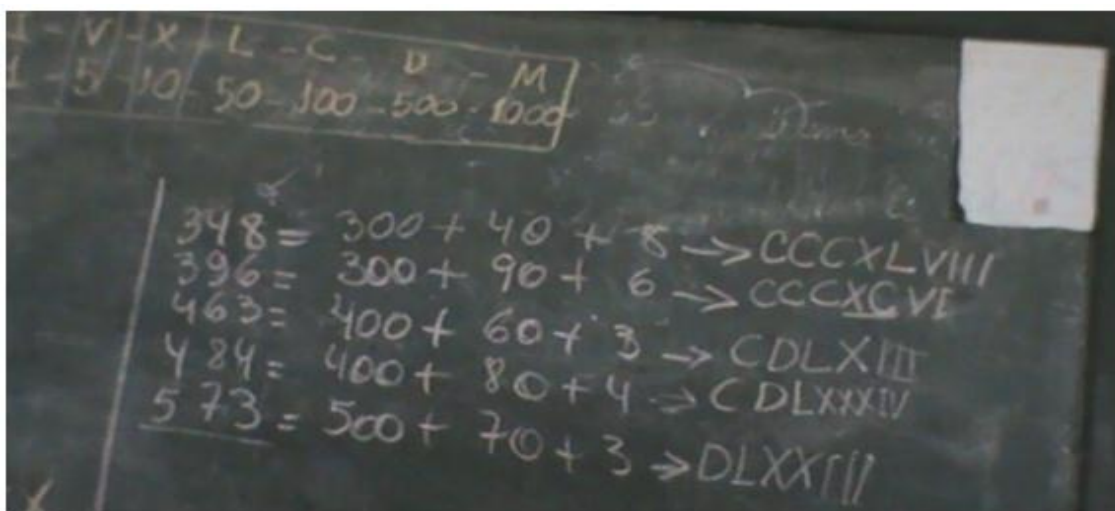 I - V - X - L - C - D - M
1 - 5 - 10 - 50 - 100 - 500 - 1000
348 = 300 + 40 + 8 → CCCXLVIII
396 = 300 + 90 + 6 → CCCXCVI
463 = 400 + 60 + 3 → CDLXIII
484 = 400 + 80 + 4 → CDLXXXIV
573 = 500 + 70 + 3 → DLXXIII